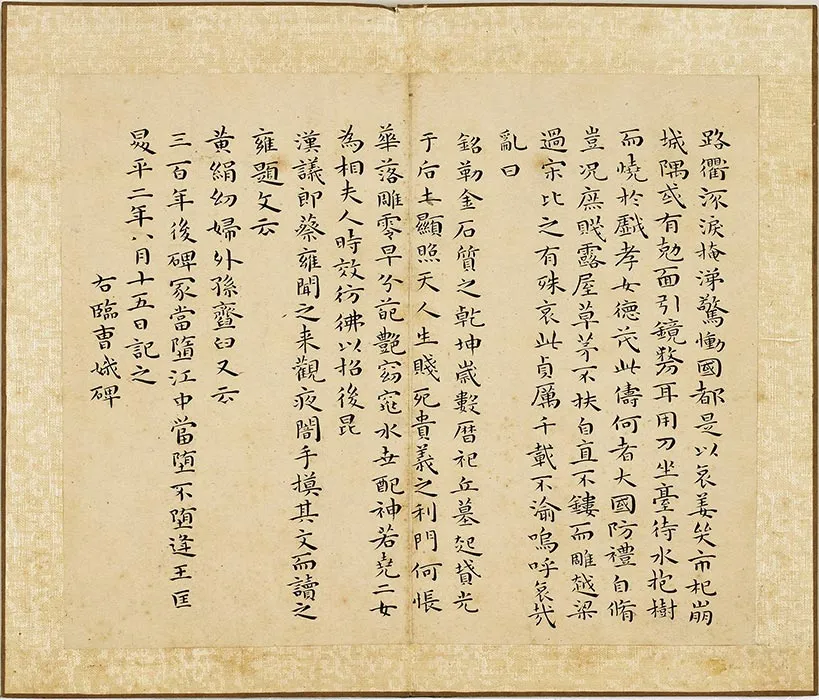 路衢流淚掩涕驚慟國都是以哀姜哭市杞崩
城隅或有勊面引鏡剺耳用刀坐臺待水抱樹
而燒於戲孝女德茂此儔何者大國防禮自脩
豈況庶賤露屋草茅不扶自直不鏤而雕越梁
過宋比之有殊哀此貞厲千載不渝嗚呼哀哉
亂曰
銘勒金石質之乾坤歲數曆祀丘墓起墳光
于后土顯照天人生賤死貴義之利門何悵
華落雕零早分葩艷窈窕永世配神若堯二女
為相夫人時效彷彿以招後昆
漢議郎蔡雍聞之来觀夜闇手摸其文而讀之
雍題文云
黃絹幼婦外孫齏臼又云
三百年後碑冢當墮江中當墮不墮逢王匡
昇平二年八月十五日記之
右臨曹娥碑